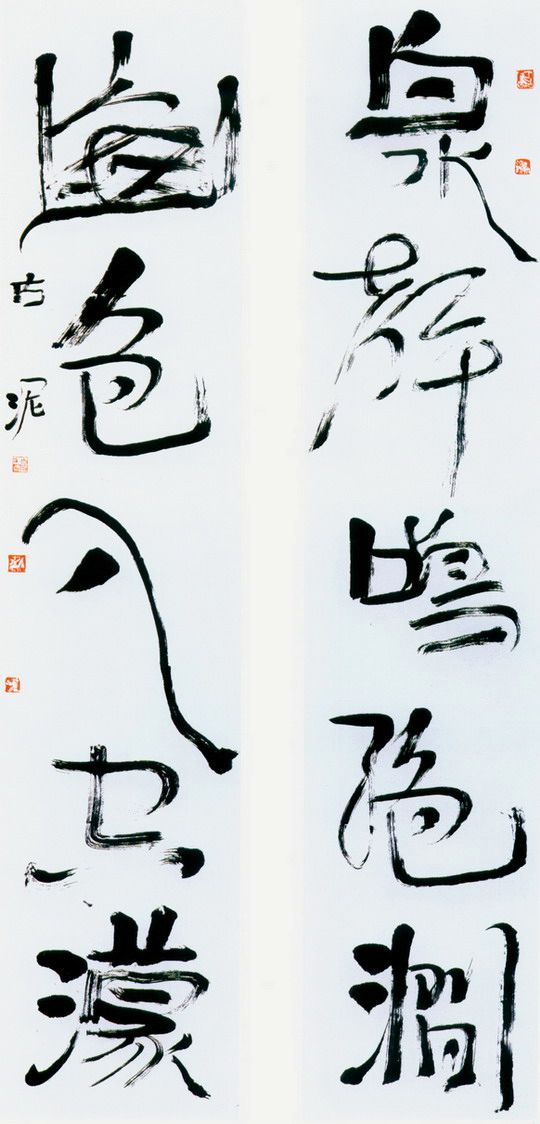 泉聲鳴絕澗
色入空濛
古泥